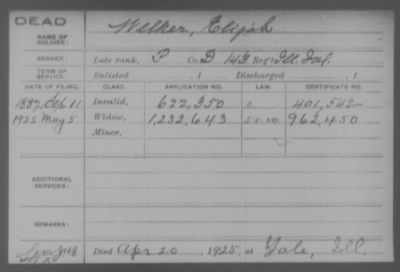 DEAD
NAME OF SOLDIER: Welker, Elijah
SERVICE: Late rank, P Co. D 143 Reg't Ill. Inf.
TERM OF SERVICE: Enlisted , 1 Discharged , 1
DATE OF FILING. CLASS. APPLICATION NO. LAW. CERTIFICATE NO.
1887 Sep 11 Invalid, 622,350 401,542
1925 May 5 Widow, 1,232,643 962,450
Minor,
ADDITIONAL SERVICES:
REMARKS:
Died Apr 20, 1925, at Yale, Ill.